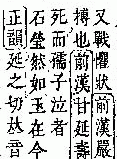 又戰懼狀前漢嚴
搏也前漢甘延壽
死而孺子泣者
石瑩然如玉在今
正韻延之切𠀤音